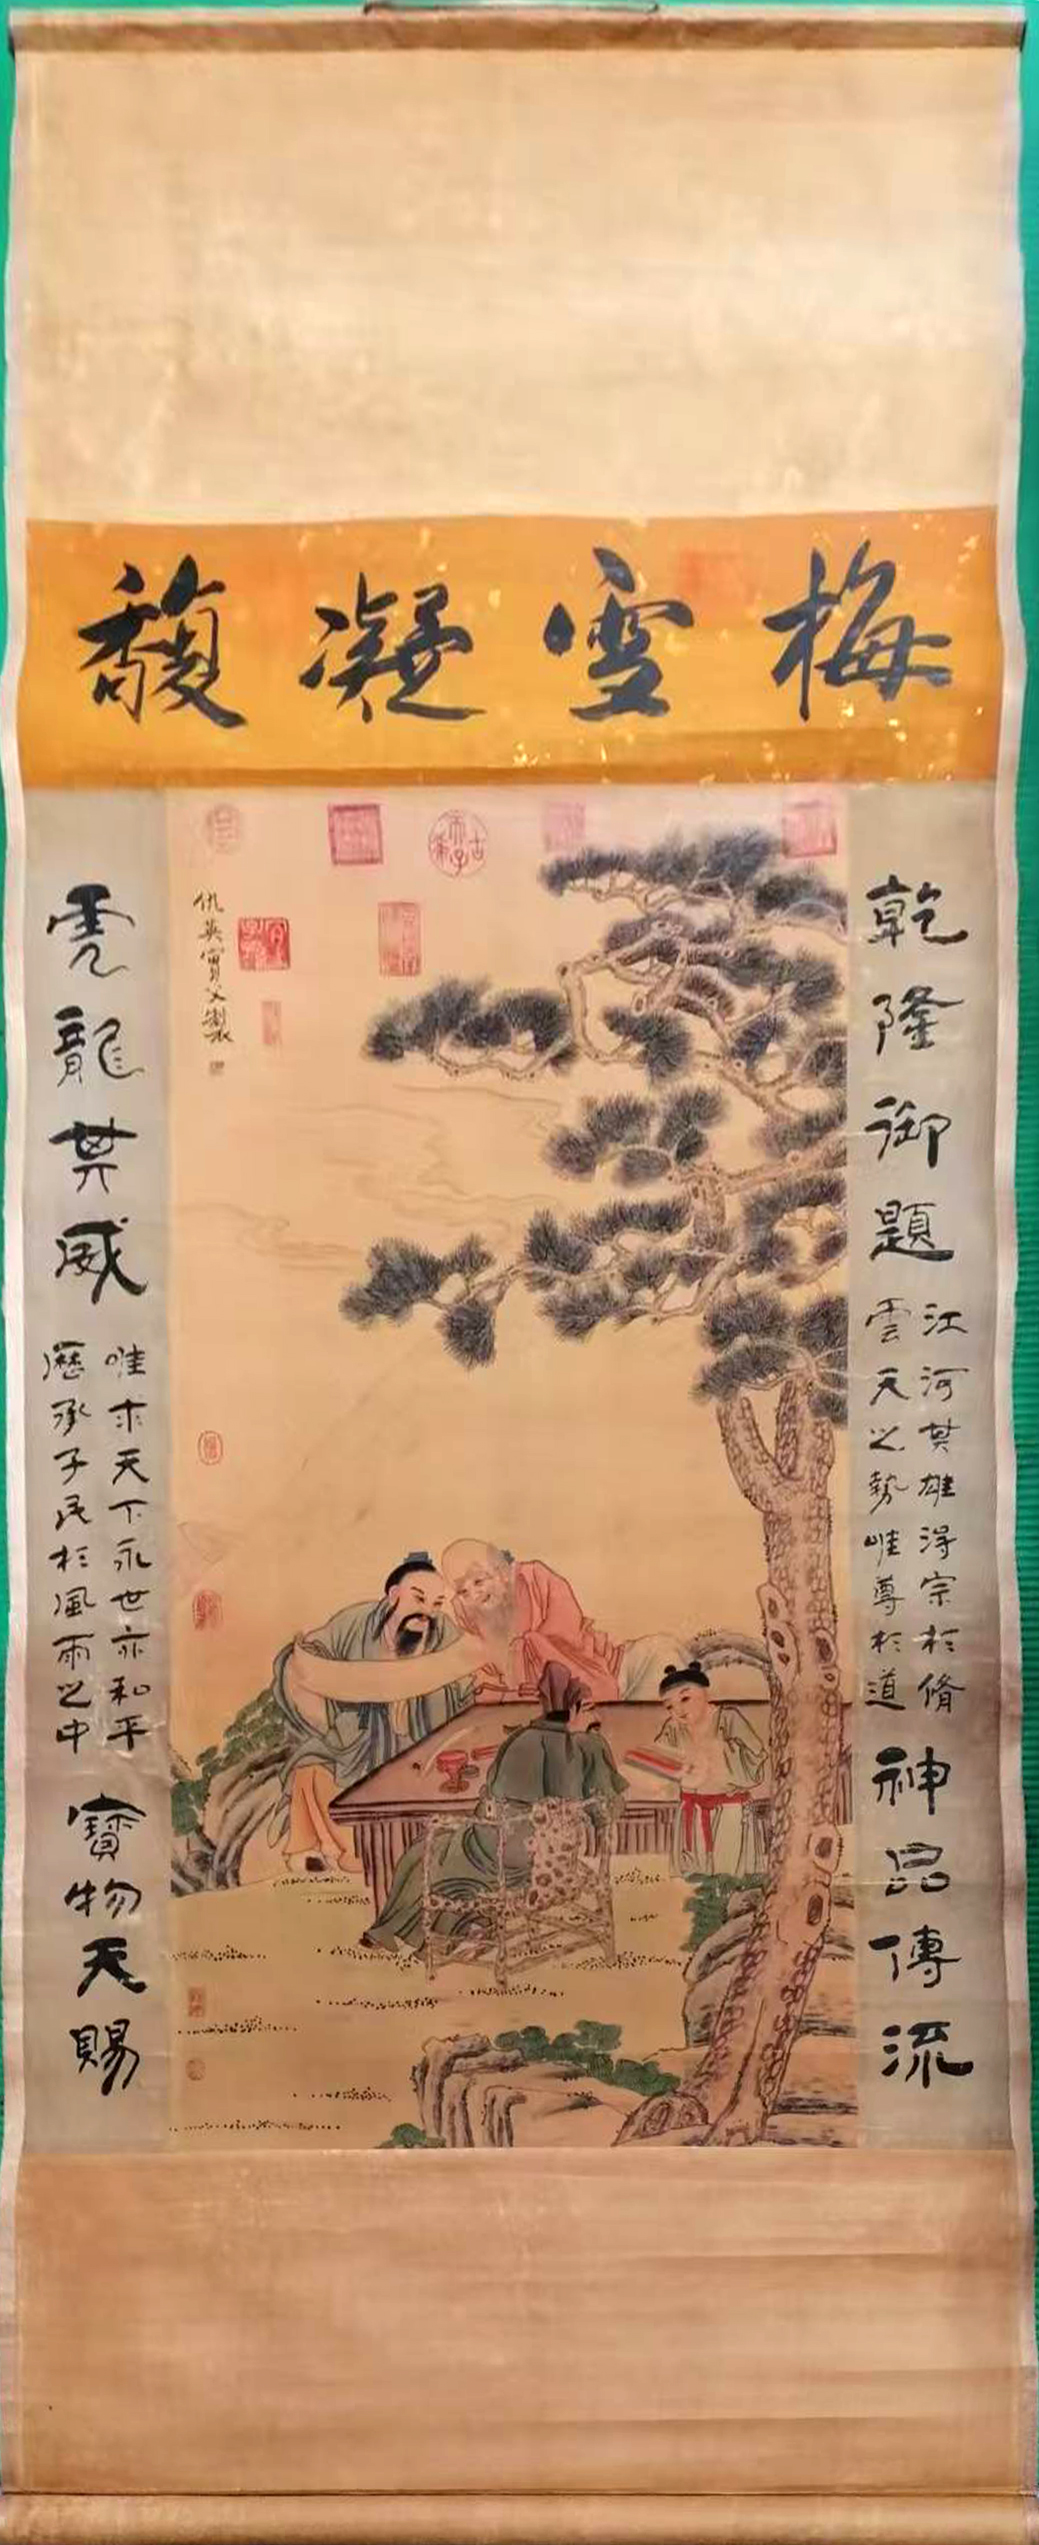 梅雪凝馥
乾隆御題
江河其雄浔宗於脩
雲天之勢唯尊於道
神品傳流
仇英實父製
古希天子
龍其威
唯求天下永世亦和平
歷承子民於風雨之中
寶物天賜